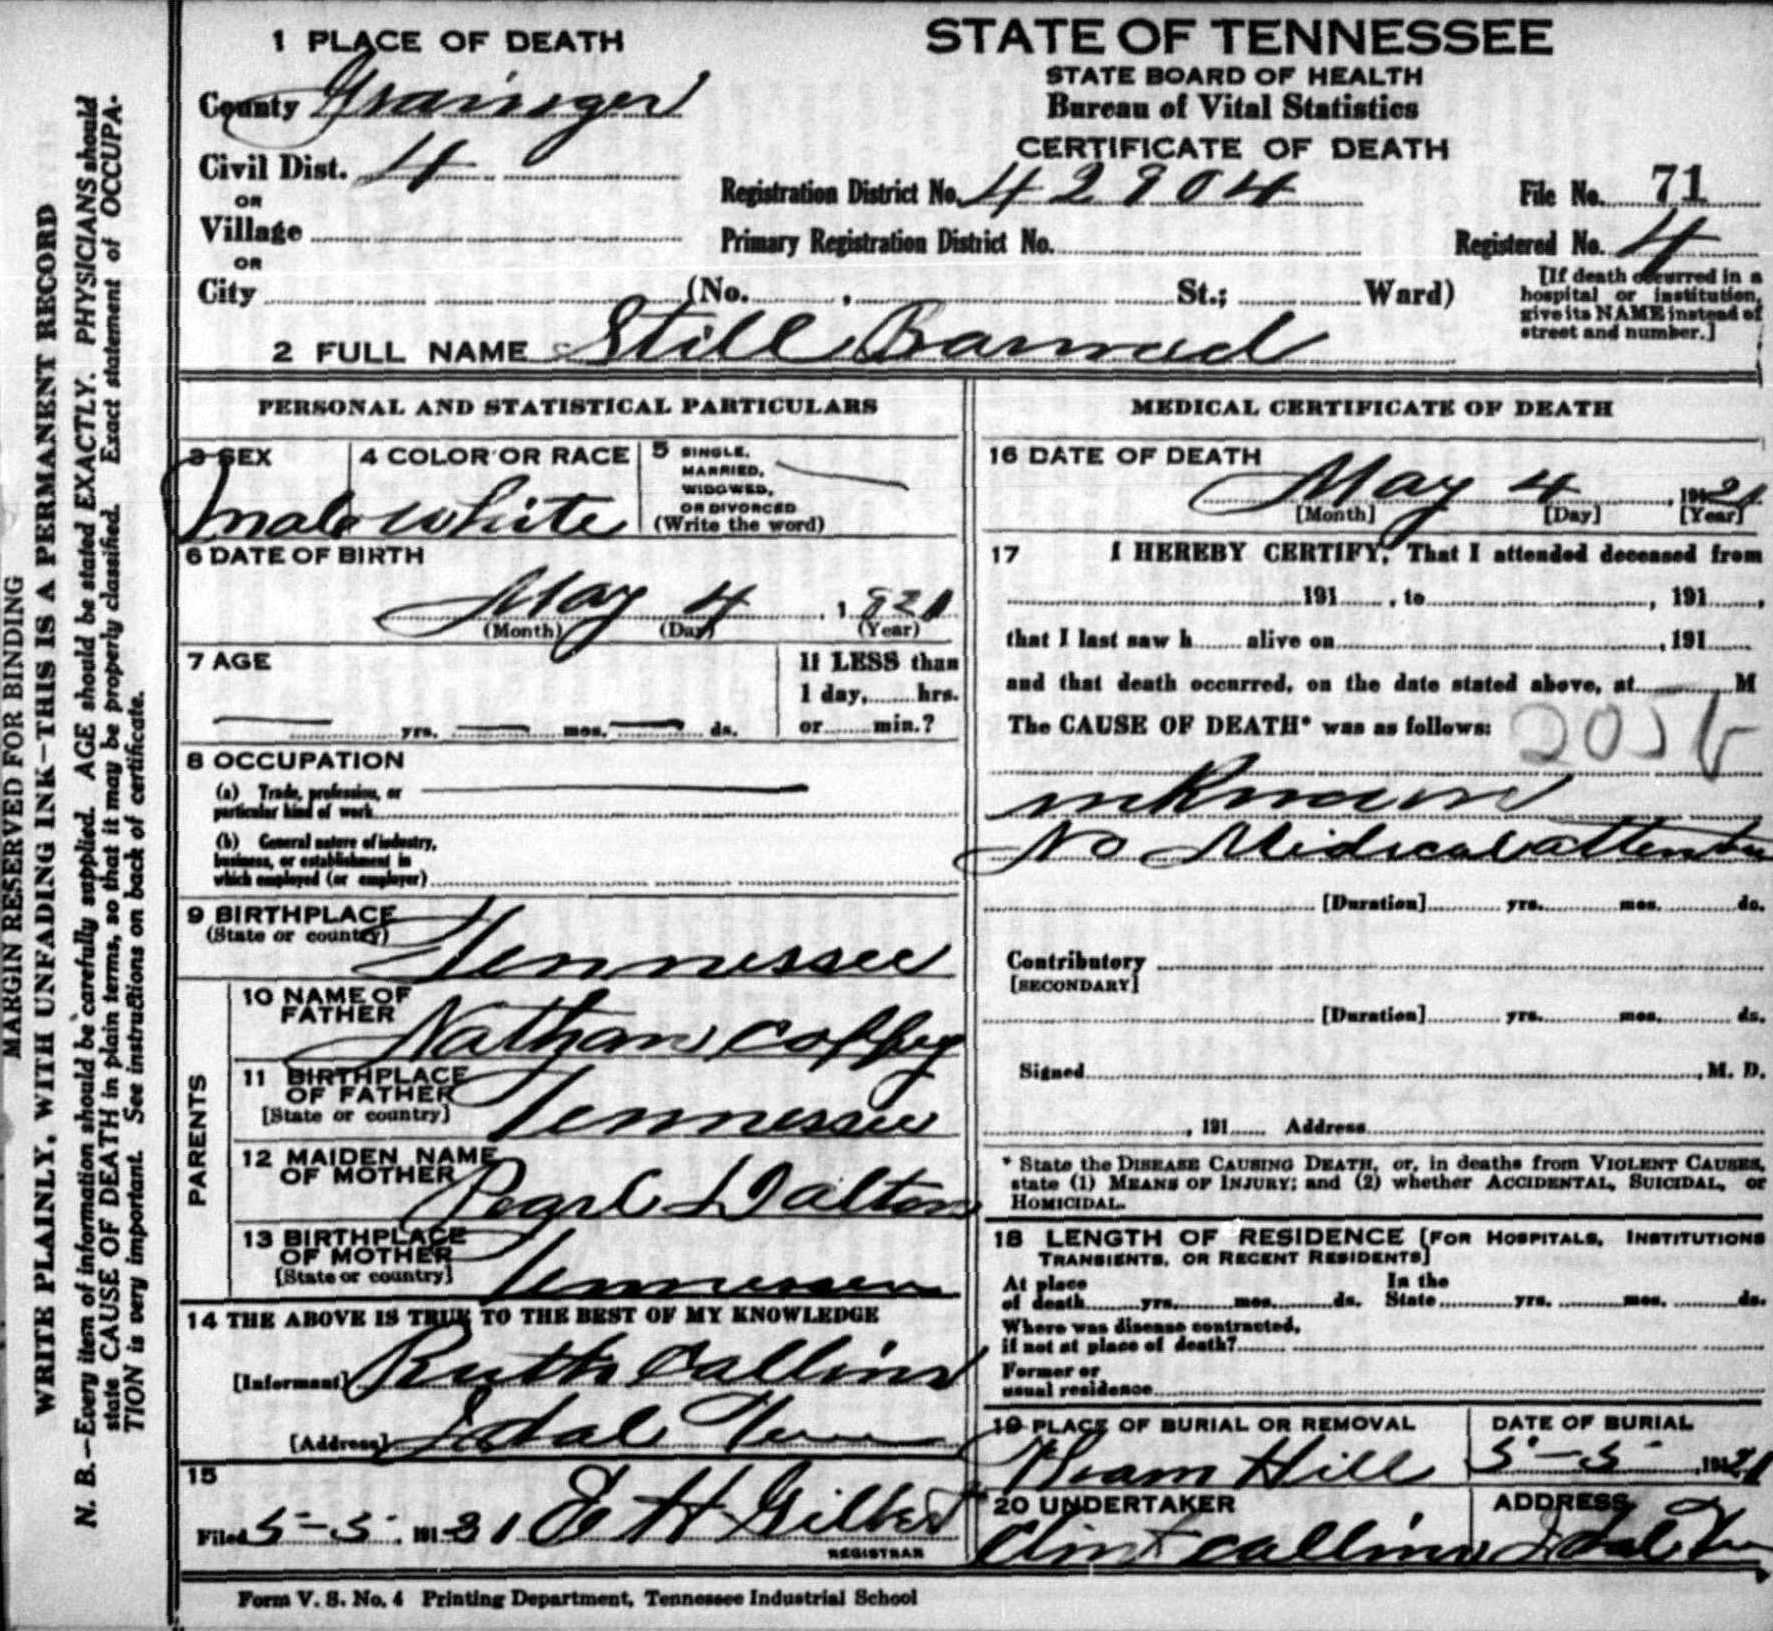 MARGIN RESERVED FOR BINDING
WRITE PLAINLY, WITH UNFADING INK—THIS IS A PERMANENT RECORD
N. B.—Every item of information should be carefully supplied. AGE should be stated EXACTLY. PHYSICIANS should
state CAUSE OF DEATH in plain terms, so that it may be properly classified. Exact statement of OCCUPA-
TION is very important. See instructions on back of certificate.
1 PLACE OF DEATH
County Grainger
Civil Dist. 4
OR
Village
OR
City (No. , St.; Ward)
STATE OF TENNESSEE
STATE BOARD OF HEALTH
Bureau of Vital Statistics
CERTIFICATE OF DEATH
Registration District No. 42904
File No. 71
Primary Registration District No.
Registered No. 4
[If death occurred in a
hospital or institution,
give its NAME instead of
street and number.]
2 FULL NAME Still Barned
PERSONAL AND STATISTICAL PARTICULARS
3 SEX
male
4 COLOR OR RACE
white
5 SINGLE,
MARRIED,
WIDOWED,
OR DIVORCED
(Write the word)
6 DATE OF BIRTH
May 4, 1 921
(Month) (Day) (Year)
7 AGE
yrs. mos. ds.
If LESS than
1 day, hrs.
or min.?
8 OCCUPATION
(a) Trade, profession, or
particular kind of work
(b) General nature of industry,
business, or establishment in
which employed (or employer)
9 BIRTHPLACE
(State or country)
Tennessee
PARENTS
10 NAME OF
FATHER
Nathan Coffey
11 BIRTHPLACE
OF FATHER
[State or country]
Tennessee
12 MAIDEN NAME
OF MOTHER
Pearl Dalton
13 BIRTHPLACE
OF MOTHER
[State or country]
Tennessee
14 THE ABOVE IS TRUE TO THE BEST OF MY KNOWLEDGE
[Informant] Ruth Collins
[Address] Idal Tenn
15
Filed 5-5, 191 21 E H Gilbert
REGISTRAR
MEDICAL CERTIFICATE OF DEATH
16 DATE OF DEATH
May 4, 1921
[Month] [Day] [Year]
17 I HEREBY CERTIFY, That I attended deceased from
191 , to , 191 ,
that I last saw h alive on , 191
and that death occurred, on the date stated above, at M
The CAUSE OF DEATH* was as follows:
205b
unknown
No Medical attention
[Duration] yrs. mos. ds.
Contributory
[SECONDARY]
[Duration] yrs. mos. ds.
Signed , M. D.
, 191 Address
* State the DISEASE CAUSING DEATH, or, in deaths from VIOLENT CAUSES,
state (1) MEANS OF INJURY; and (2) whether ACCIDENTAL, SUICIDAL, or
HOMICIDAL.
18 LENGTH OF RESIDENCE [FOR HOSPITALS, INSTITUTIONS
TRANSIENTS, OR RECENT RESIDENTS]
At place
of death yrs. mos. ds.
In the
State yrs. mos. ds.
Where was disease contracted,
if not at place of death?
Former or
usual residence
19 PLACE OF BURIAL OR REMOVAL
Hill
DATE OF BURIAL
5-5, 1921
20 UNDERTAKER
Clint Collins
ADDRESS
Idal Tenn
Form V. S. No. 4 Printing Department, Tennessee Industrial School